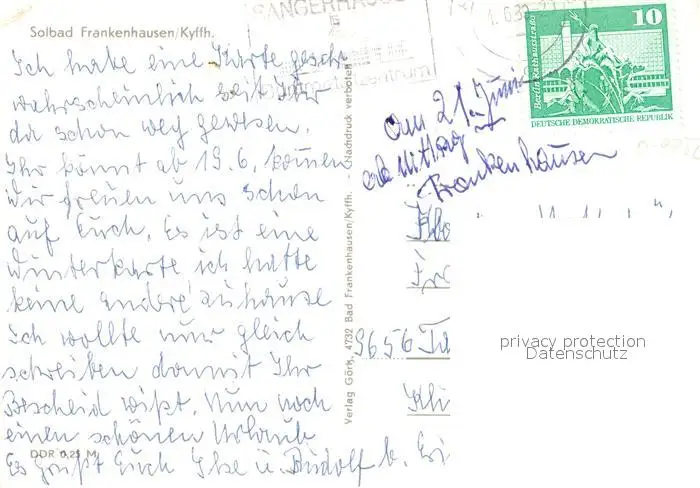 Solbad Frankenhausen/Kyffh.
SANGERHAUSE
zentrum
10
Berlin Rathausstraße
DEUTSCHE DEMOKRATISCHE REPUBLIK
Ich habe eine Karte gesch
wahrscheinlich seit Ihr
da schon weg gewesen.
Ihr könnt ab 19.6. kommen
wir freuen uns schon
auf Euch. Es ist eine
Winterkarte ich hatte
keine andere zuhause
ich wollte nur gleich
schreiben damit Ihr
Bescheid wißt. Nun noch
einen schönen Urlaub
Es grüßt Euch Ilse u. Rudolf b.
DDR 0,25 M
Verlag Görk, 4732 Bad Frankenhausen/Kyffh. Nachdruck verboten
am 21. Juni
Mittag
Frankenhausen
9656
privacy protection
Datenschutz